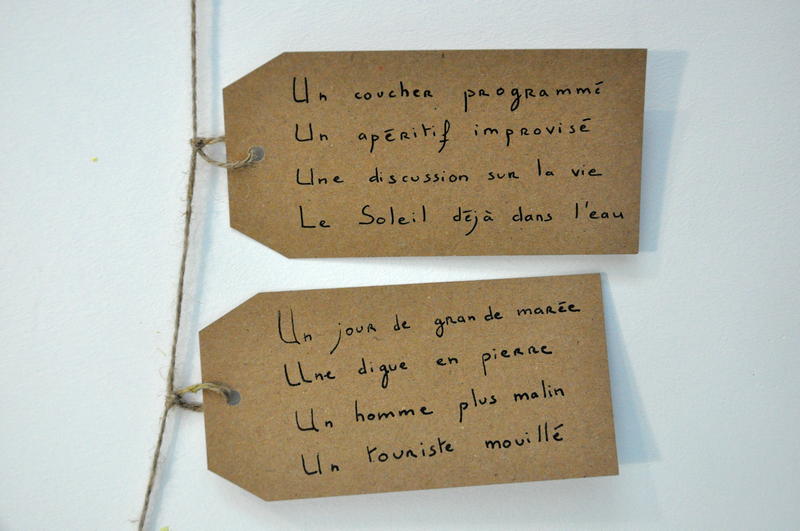 Un coucher programmé
Un apéritif improvisé
Une discussion sur la vie
Le Soleil déjà dans l'eau
Un jour de grande marée
Une digue en pierre
Un homme plus malin
Un touriste mouillé